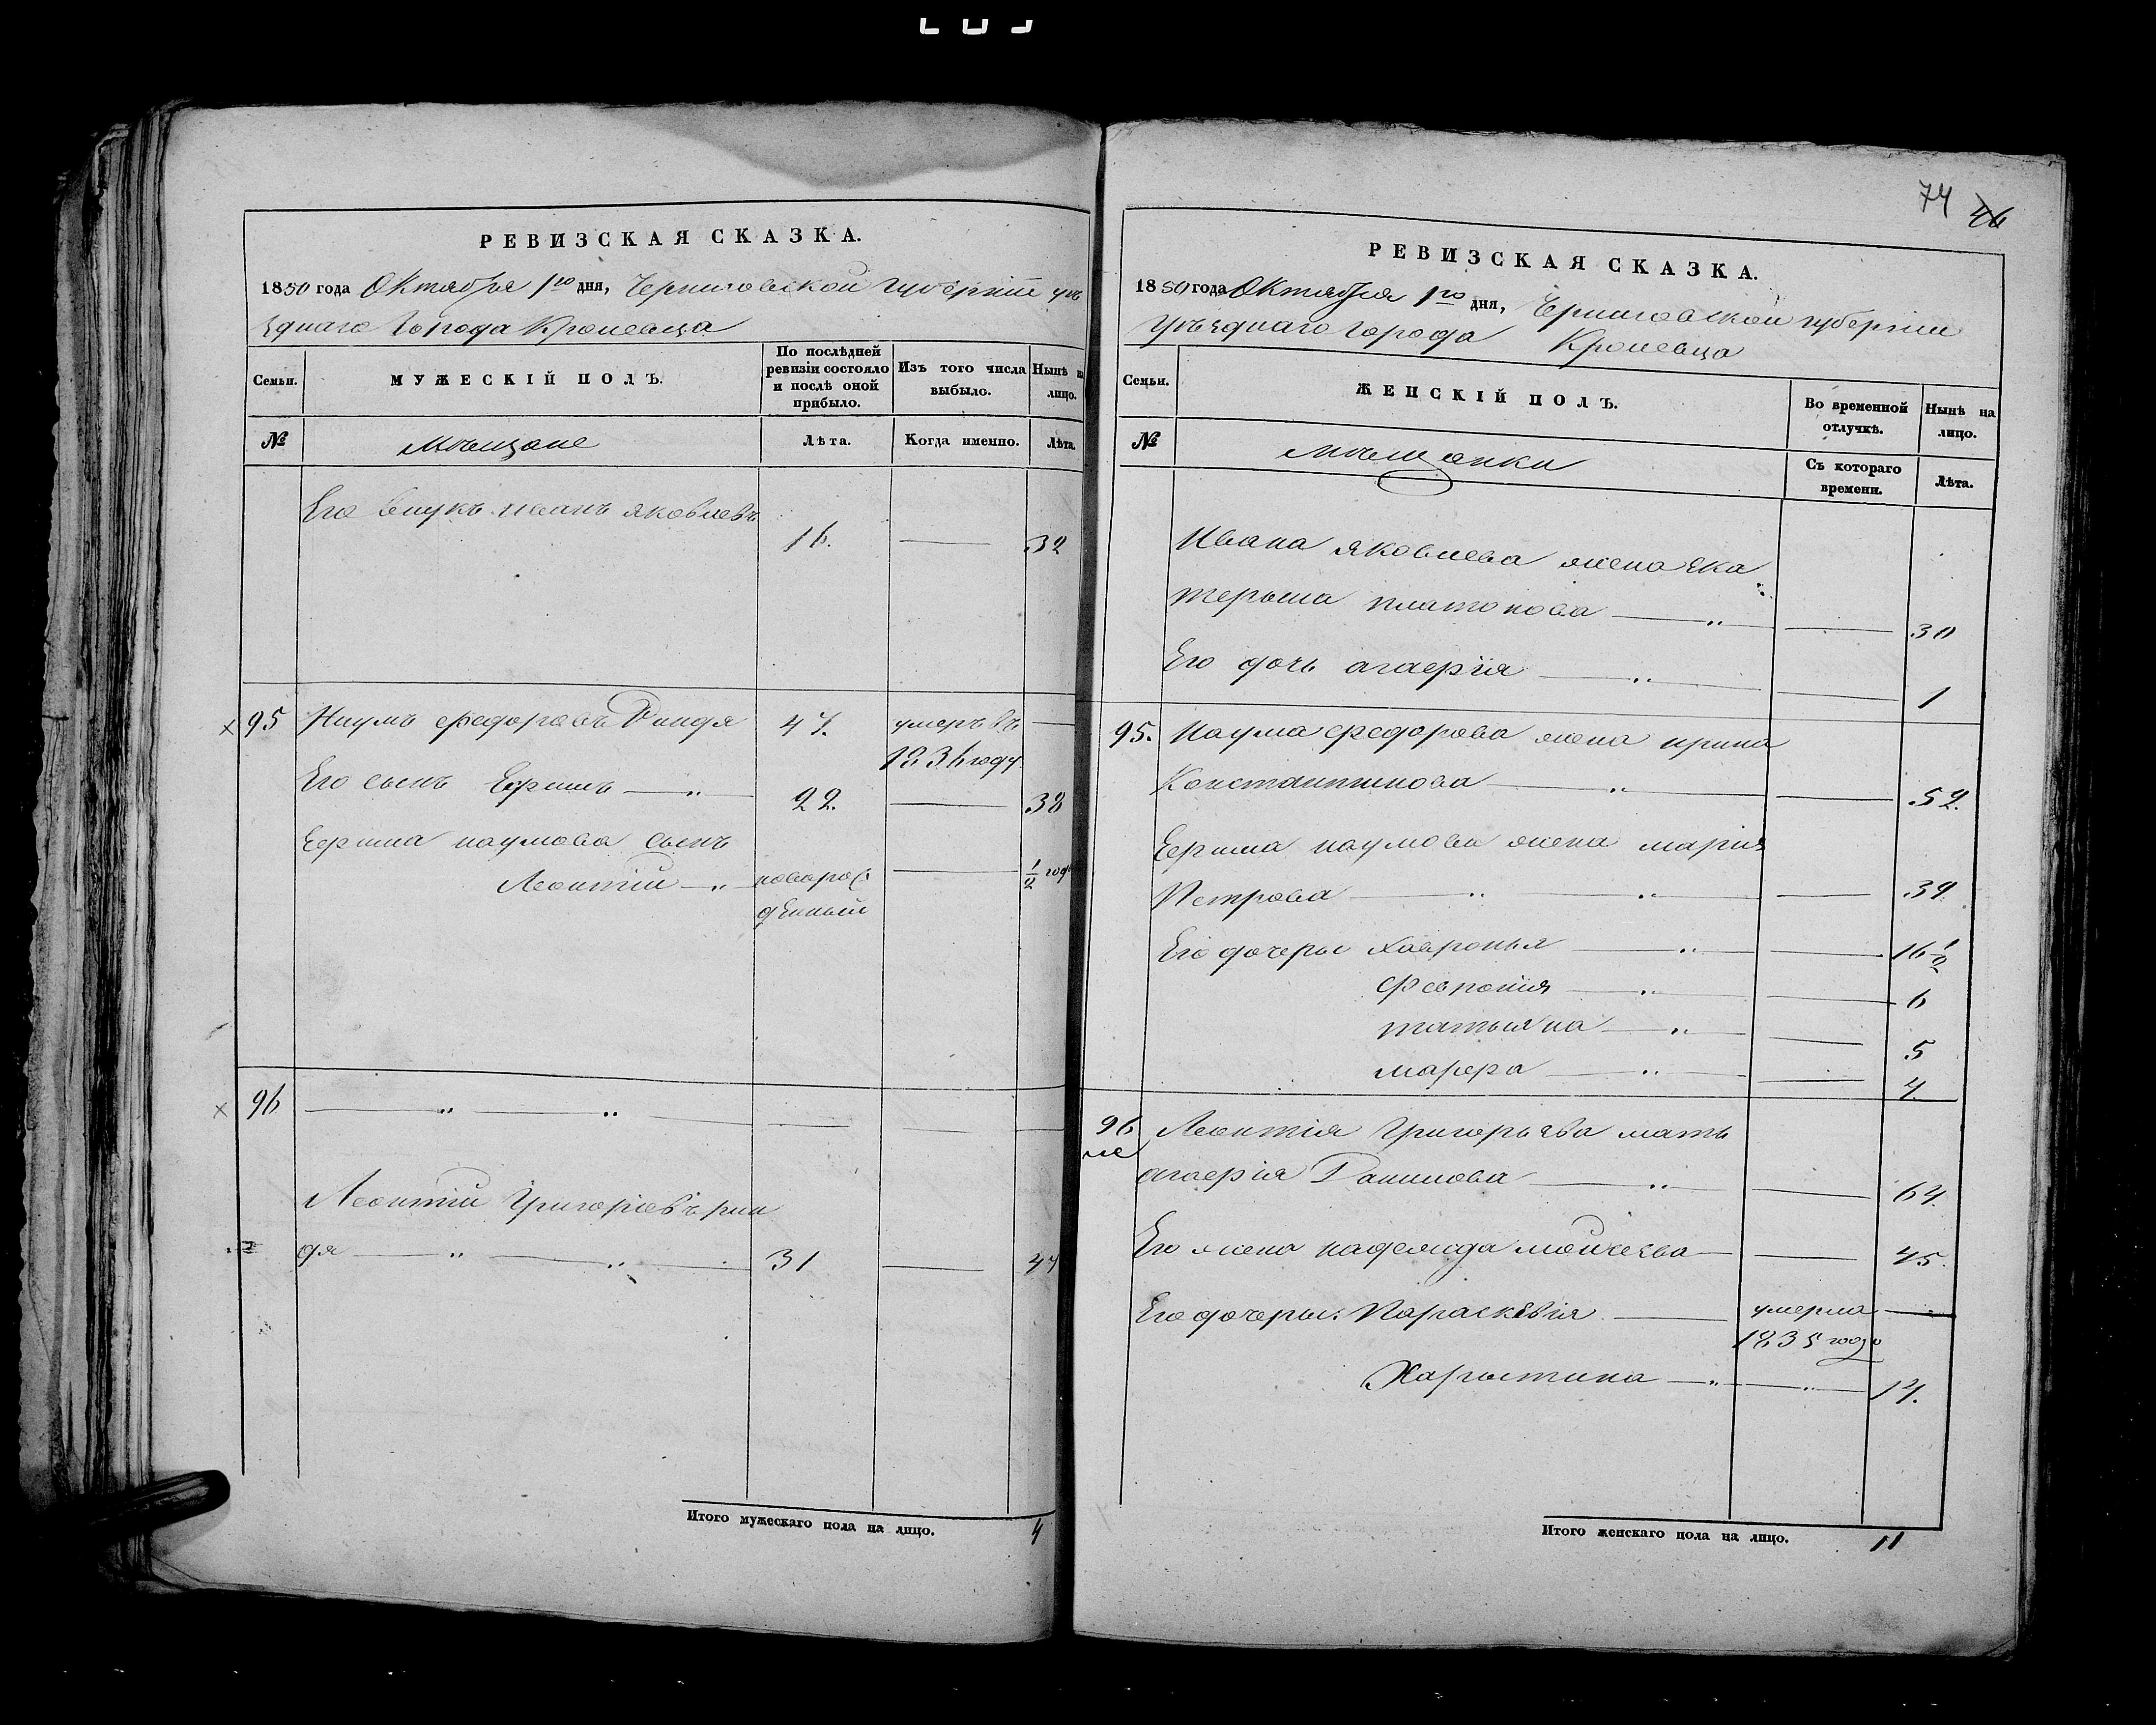 74 46
РЕВИЗСКАЯ СКАЗКА.
1850 года Октября 1го дня, Черниговской губерніи уѣ
зднаго Города Кролевца
Семьи.
МУЖЕСКІЙ ПОЛЪ.
По послѣдней ревизіи состояло и послѣ оной прибыло.
Изъ того числа выбыло.
Нынѣ на лицо.
№
Мѣщане
Лѣта.
Когда именно.
Лѣта.
Его внукъ иванъ яковлевъ
16. — 32
95 Наумъ федоровъ 47. умеръ въ —
1836 году
Его сынъ Ефимъ — 22. — 38
Ефима наумова сынъ
Леонтій — новорож — ½ года
денный
96 — — —
Леонтій Григоріевъ
дя — 31 — 47
Итого мужескаго пола на лицо. 4
РЕВИЗСКАЯ СКАЗКА.
1850 года Октября 1го дня, Черниговской губерніи
уѣзднаго города Кролевца
Семьи.
ЖЕНСКІЙ ПОЛЪ.
Во временной отлучкѣ.
Нынѣ на лицо.
№
мѣщанки
Съ котораго времени.
Лѣта.
Ивана яковлева жена ека
терына платонова — — 30
Его дочь агафія — — 1
95. Наума федорова жена ирина
Константинова — — 52.
Ефима наумова жена марія
Петрова — — 39.
Его дочеры хавронья — — 16½
Февронія — — 6
татьяна — — 5
марфа — — 4
96 Леонтія Григорьева мать
агафія Данилова — — 64.
Его жена надежда моисеева — — 45.
Его дочеры: Параскевія — умерла —
1835 года
Харытина — — 14.
Итого женскаго пола на лицо. 11